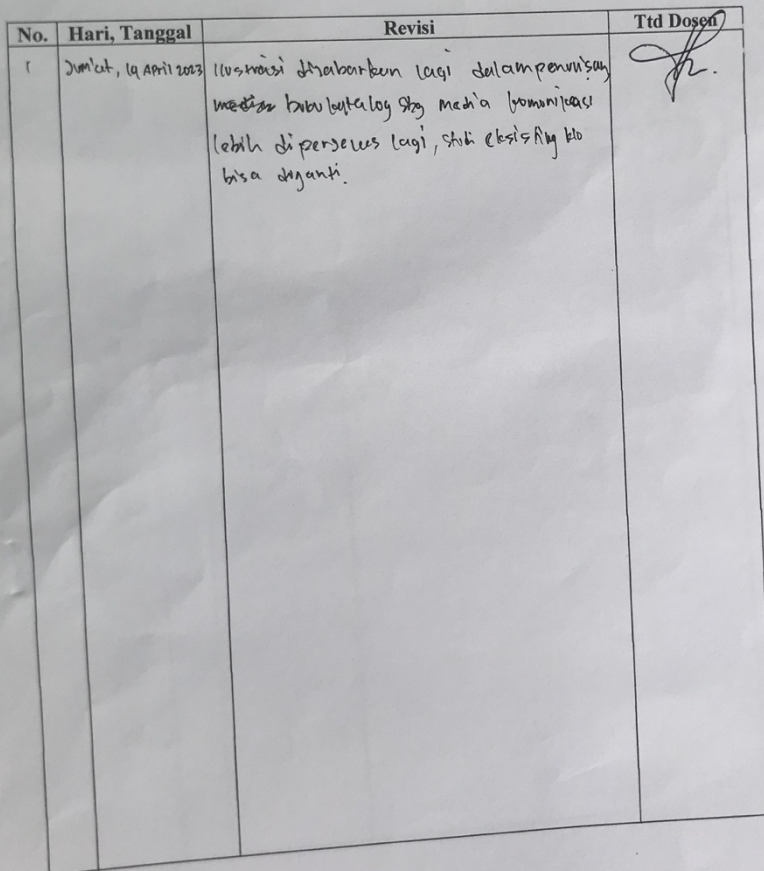 No. Hari, Tanggal Revisi Ttd Dosen
1 Jum'at, 14 April 2023 Ilustrasi dijabarkan lagi dalam penulisan
media buku katalog sbg media komunikasi
lebih diperjelas lagi, studi eksisting klo
bisa diganti.